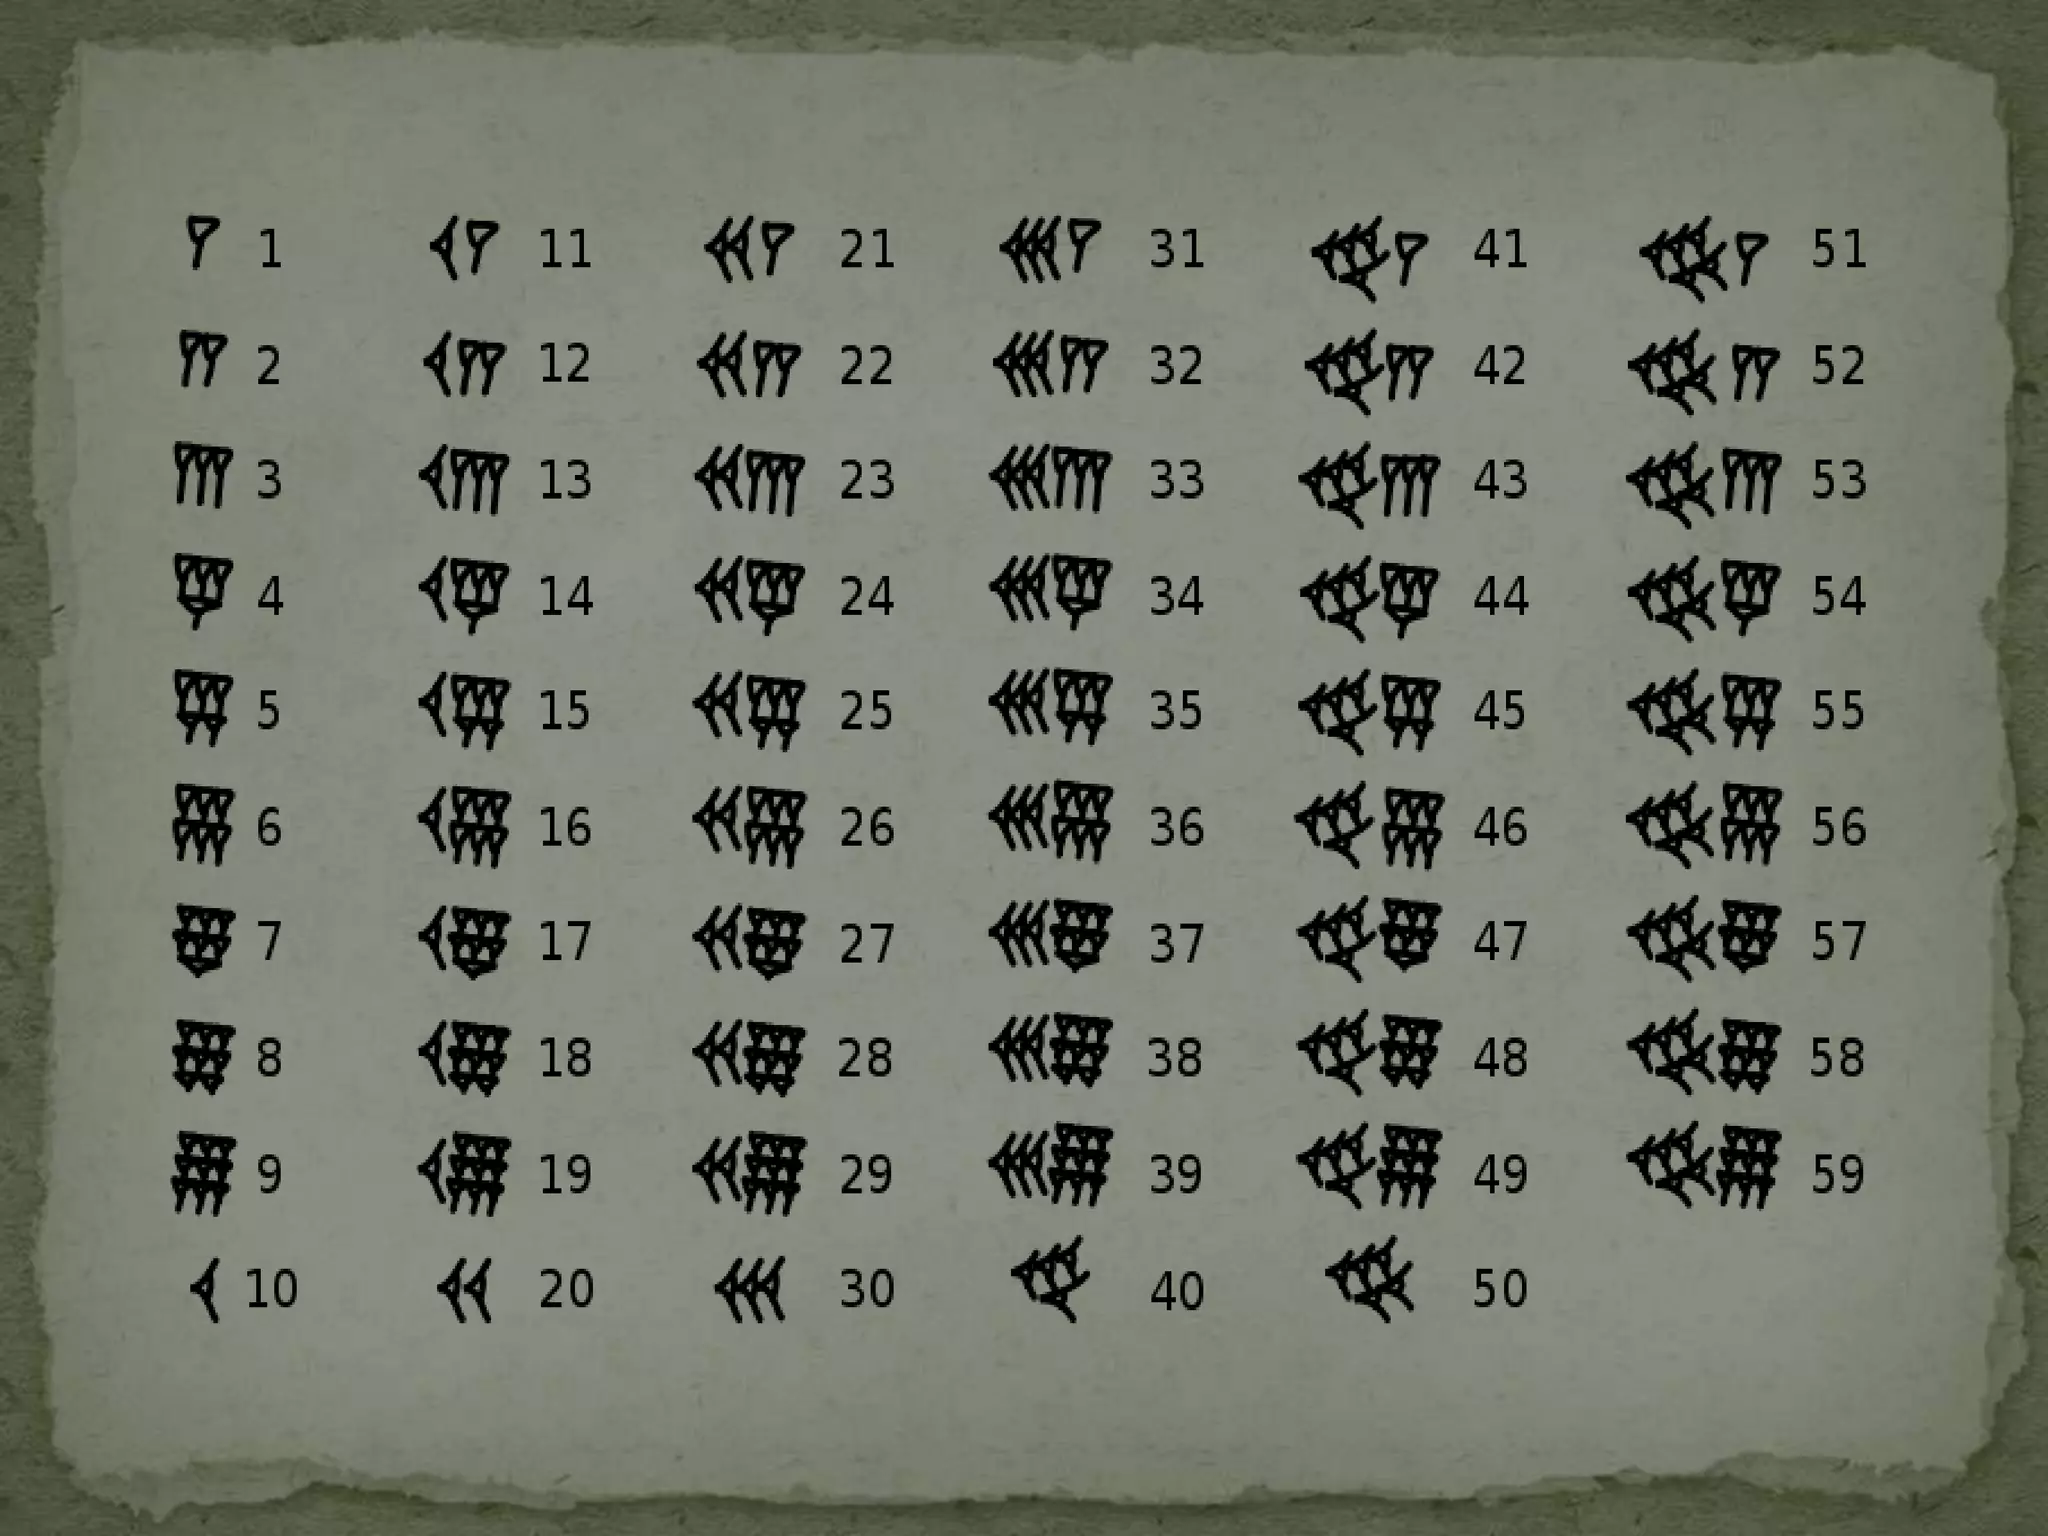 𒐕 1 𒌋𒐕 11 𒎙𒐕 21 𒌍𒐕 31 𒐏𒐕 41 𒐐𒐕 51
𒐖 2 𒌋𒐖 12 𒎙𒐖 22 𒌍𒐖 32 𒐏𒐖 42 𒐐𒐖 52
𒐗 3 𒌋𒐗 13 𒎙𒐗 23 𒌍𒐗 33 𒐏𒐗 43 𒐐𒐗 53
𒐘 4 𒌋𒐘 14 𒎙𒐘 24 𒌍𒐘 34 𒐏𒐘 44 𒐐𒐘 54
𒐙 5 𒌋𒐙 15 𒎙𒐙 25 𒌍𒐙 35 𒐏𒐙 45 𒐐𒐙 55
𒐚 6 𒌋𒐚 16 𒎙𒐚 26 𒌍𒐚 36 𒐏𒐚 46 𒐐𒐚 56
𒐛 7 𒌋𒐛 17 𒎙𒐛 27 𒌍𒐛 37 𒐏𒐛 47 𒐐𒐛 57
𒐜 8 𒌋𒐜 18 𒎙𒐜 28 𒌍𒐜 38 𒐏𒐜 48 𒐐𒐜 58
𒐝 9 𒌋𒐝 19 𒎙𒐝 29 𒌍𒐝 39 𒐏𒐝 49 𒐐𒐝 59
𒌋 10 𒎙 20 𒌍 30 𒐏 40 𒐐 50